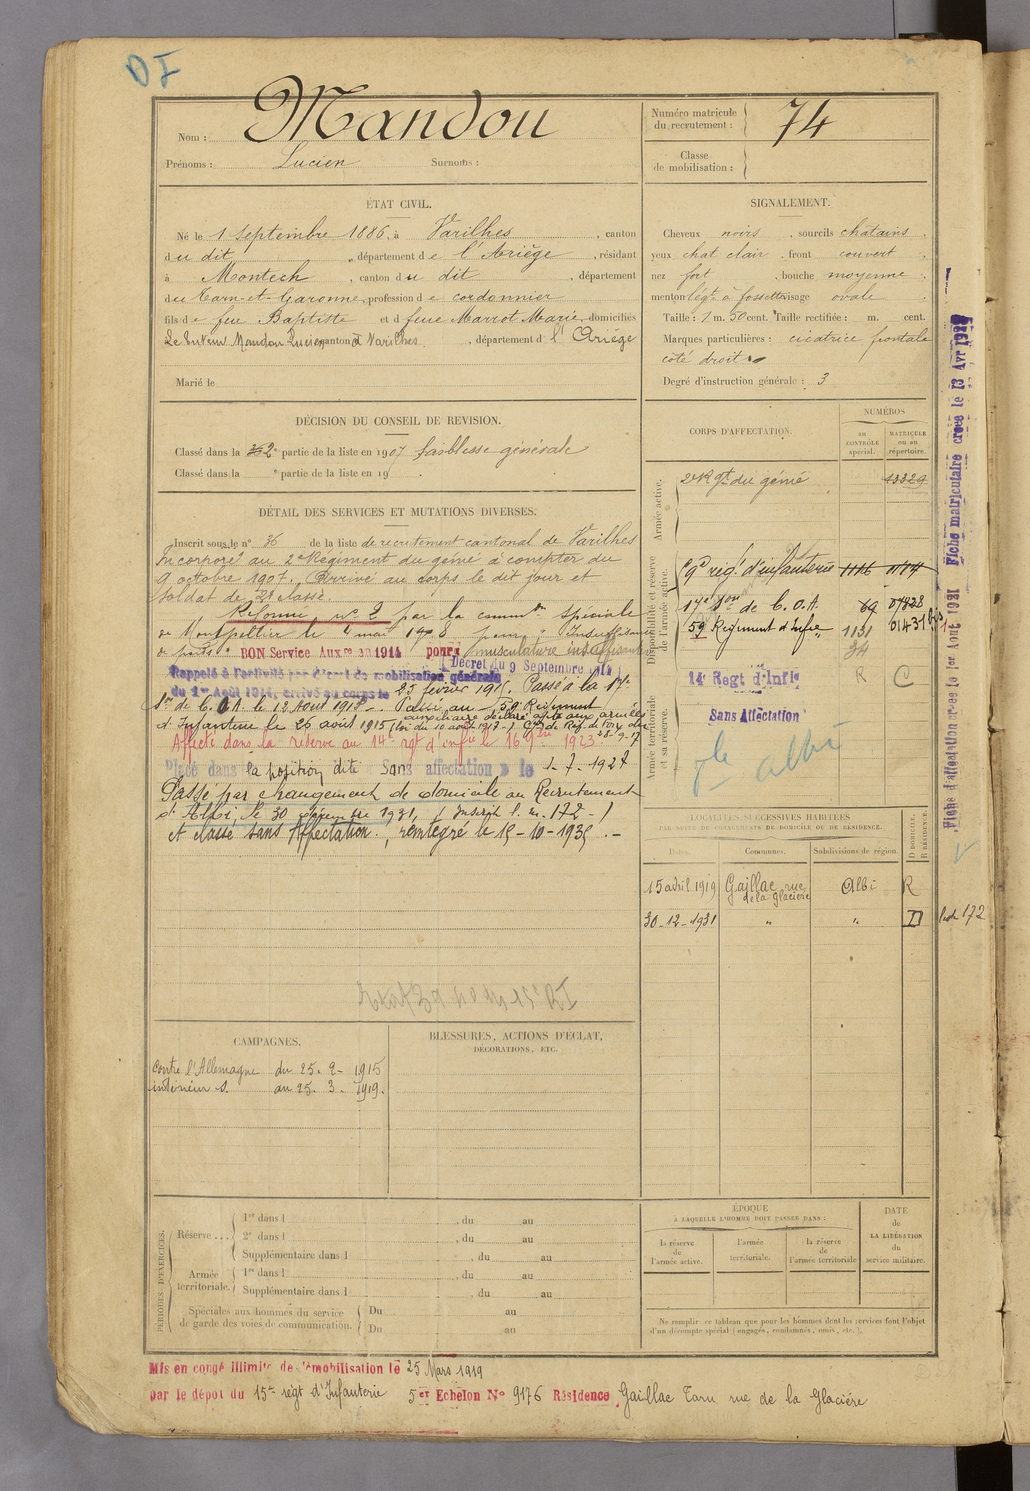 DI
Nom : Mandou
Prénoms : Lucien Surnoms :
Numéro matricule du recrutement : 74
Classe de mobilisation :
ÉTAT CIVIL.
Né le 1 Septembre 1886, à Varilhes, canton
du dit, département de l'Ariège, résidant
à Montech, canton du dit, département
du Tarn-et-Garonne, profession de cordonnier
fils de feu Baptiste et de feue Marrot Marie, domiciliés
Mandou Lucien canton d Varilhes, département d l'Ariège
Marié le
SIGNALEMENT.
Cheveux noirs, sourcils chatains,
yeux chat clair, front couvert,
nez fort, bouche moyenne,
menton légt à fossette visage ovale.
Taille : 1 m. 50 cent. Taille rectifiée : m. cent.
Marques particulières : cicatrice frontale
côté droit
Degré d'instruction générale : 3
DÉCISION DU CONSEIL DE REVISION.
Classé dans la 2e partie de la liste en 1907 faiblesse générale
Classé dans la e partie de la liste en 19
CORPS D'AFFECTATION.
NUMÉROS
au CONTRÔLE spécial.
MATRICULE ou au répertoire.
Armée active.
2e Rgt du génie 13329
Disponibilité et réserve de l'armée active.
rég. d'infanterie 1116
17e Son de C.O.A. 69 07828
59 Régiment d'Infie 1131 01431 bis
34
14e Regt d'Infie R C
Armée territoriale et sa réserve.
Sans Affectation
Albi
DÉTAIL DES SERVICES ET MUTATIONS DIVERSES.
Inscrit sous le n° 36 de la liste de recrutement cantonal de Varilhes
Incorporé au 2e Régiment du génie à compter du
9 octobre 1907. Arrivé au corps le dit jour et
soldat de 2e classe.
Réformé n° 2 par la common spéciale
de Montpellier le 4 mai 1908 pour " Insuffisance
de poids " BON Service Auxre 1914 pour musculature insuffisante
Décret du 9 Septembre 1914
Rappelé à l'activité par décret de mobilisation générale
du 1er Août 1914, arrivé au corps le 25 février 1915. Passé à la 17e
Son de C.O.A. le 12 Août 1915. Passé au 59 Régiment
d'Infanterie le 26 août 1915
Affecté dans la réserve au 14e rgt d'infie le 16 9bre 1923 28-9-17
Placé dans la position dite « Sans affectation » le 1-7-1927
Passé par changement de domicile au Recrutement
d'Albi, le 30 décembre 1931, (Inscrit l. m. 172 -)
et classé sans Affectation, réintégré le 15-10-1935.-
LOCALITÉS SUCCESSIVES HABITÉES
PAR SUITE DE CHANGEMENTS DE DOMICILE OU DE RÉSIDENCE.
Dates. Communes. Subdivisions de région. D DOMICILE. R RÉSIDENCE.
15 avril 1919 Gaillac rue de la Glacière Albi R
30-12-1931 " " D 172
CAMPAGNES.
contre l'Allemagne du 25-2-1915
intérieur S. au 25.3-1919.
BLESSURES, ACTIONS D'ÉCLAT,
DÉCORATIONS, ETC.
PÉRIODES D'EXERCICES.
Réserve ... 1re dans l , du au
2e dans l , du au
Supplémentaire dans l , du au
Armée territoriale. 1re dans l , du au
Supplémentaire dans l , du au
Spéciales aux hommes du service Du au
de garde des voies de communication. Du au
ÉPOQUE
À LAQUELLE L'HOMME DOIT PASSER DANS :
la réserve de l'armée active.
l'armée territoriale.
la réserve de l'armée territoriale
DATE de LA LIBÉRATION du service militaire.
Ne remplir ce tableau que pour les hommes dont les services font l'objet
d'un décompte spécial (engagés, condamnés, omis, etc.).
Mis en congé illimité de démobilisation le 25 Mars 1919
par le dépot du 15e régt d'Infanterie 5er Echelon N° 9176 Résidence Gaillac Tarn rue de la Glacière
Fiche d'affectation créée le 1er Août 1921 Fiche matriculaire créée le 13 Avr